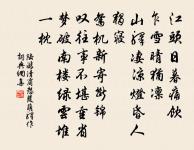 江頭日暮痛飲
乍雪晴猶凜
山驛淒涼燈昏人
獨寢
鴛機新寄斷錦
嘆往事不堪重省
夢破南樓綠雲堆
一枕
陸游清商怨葭萌驛作